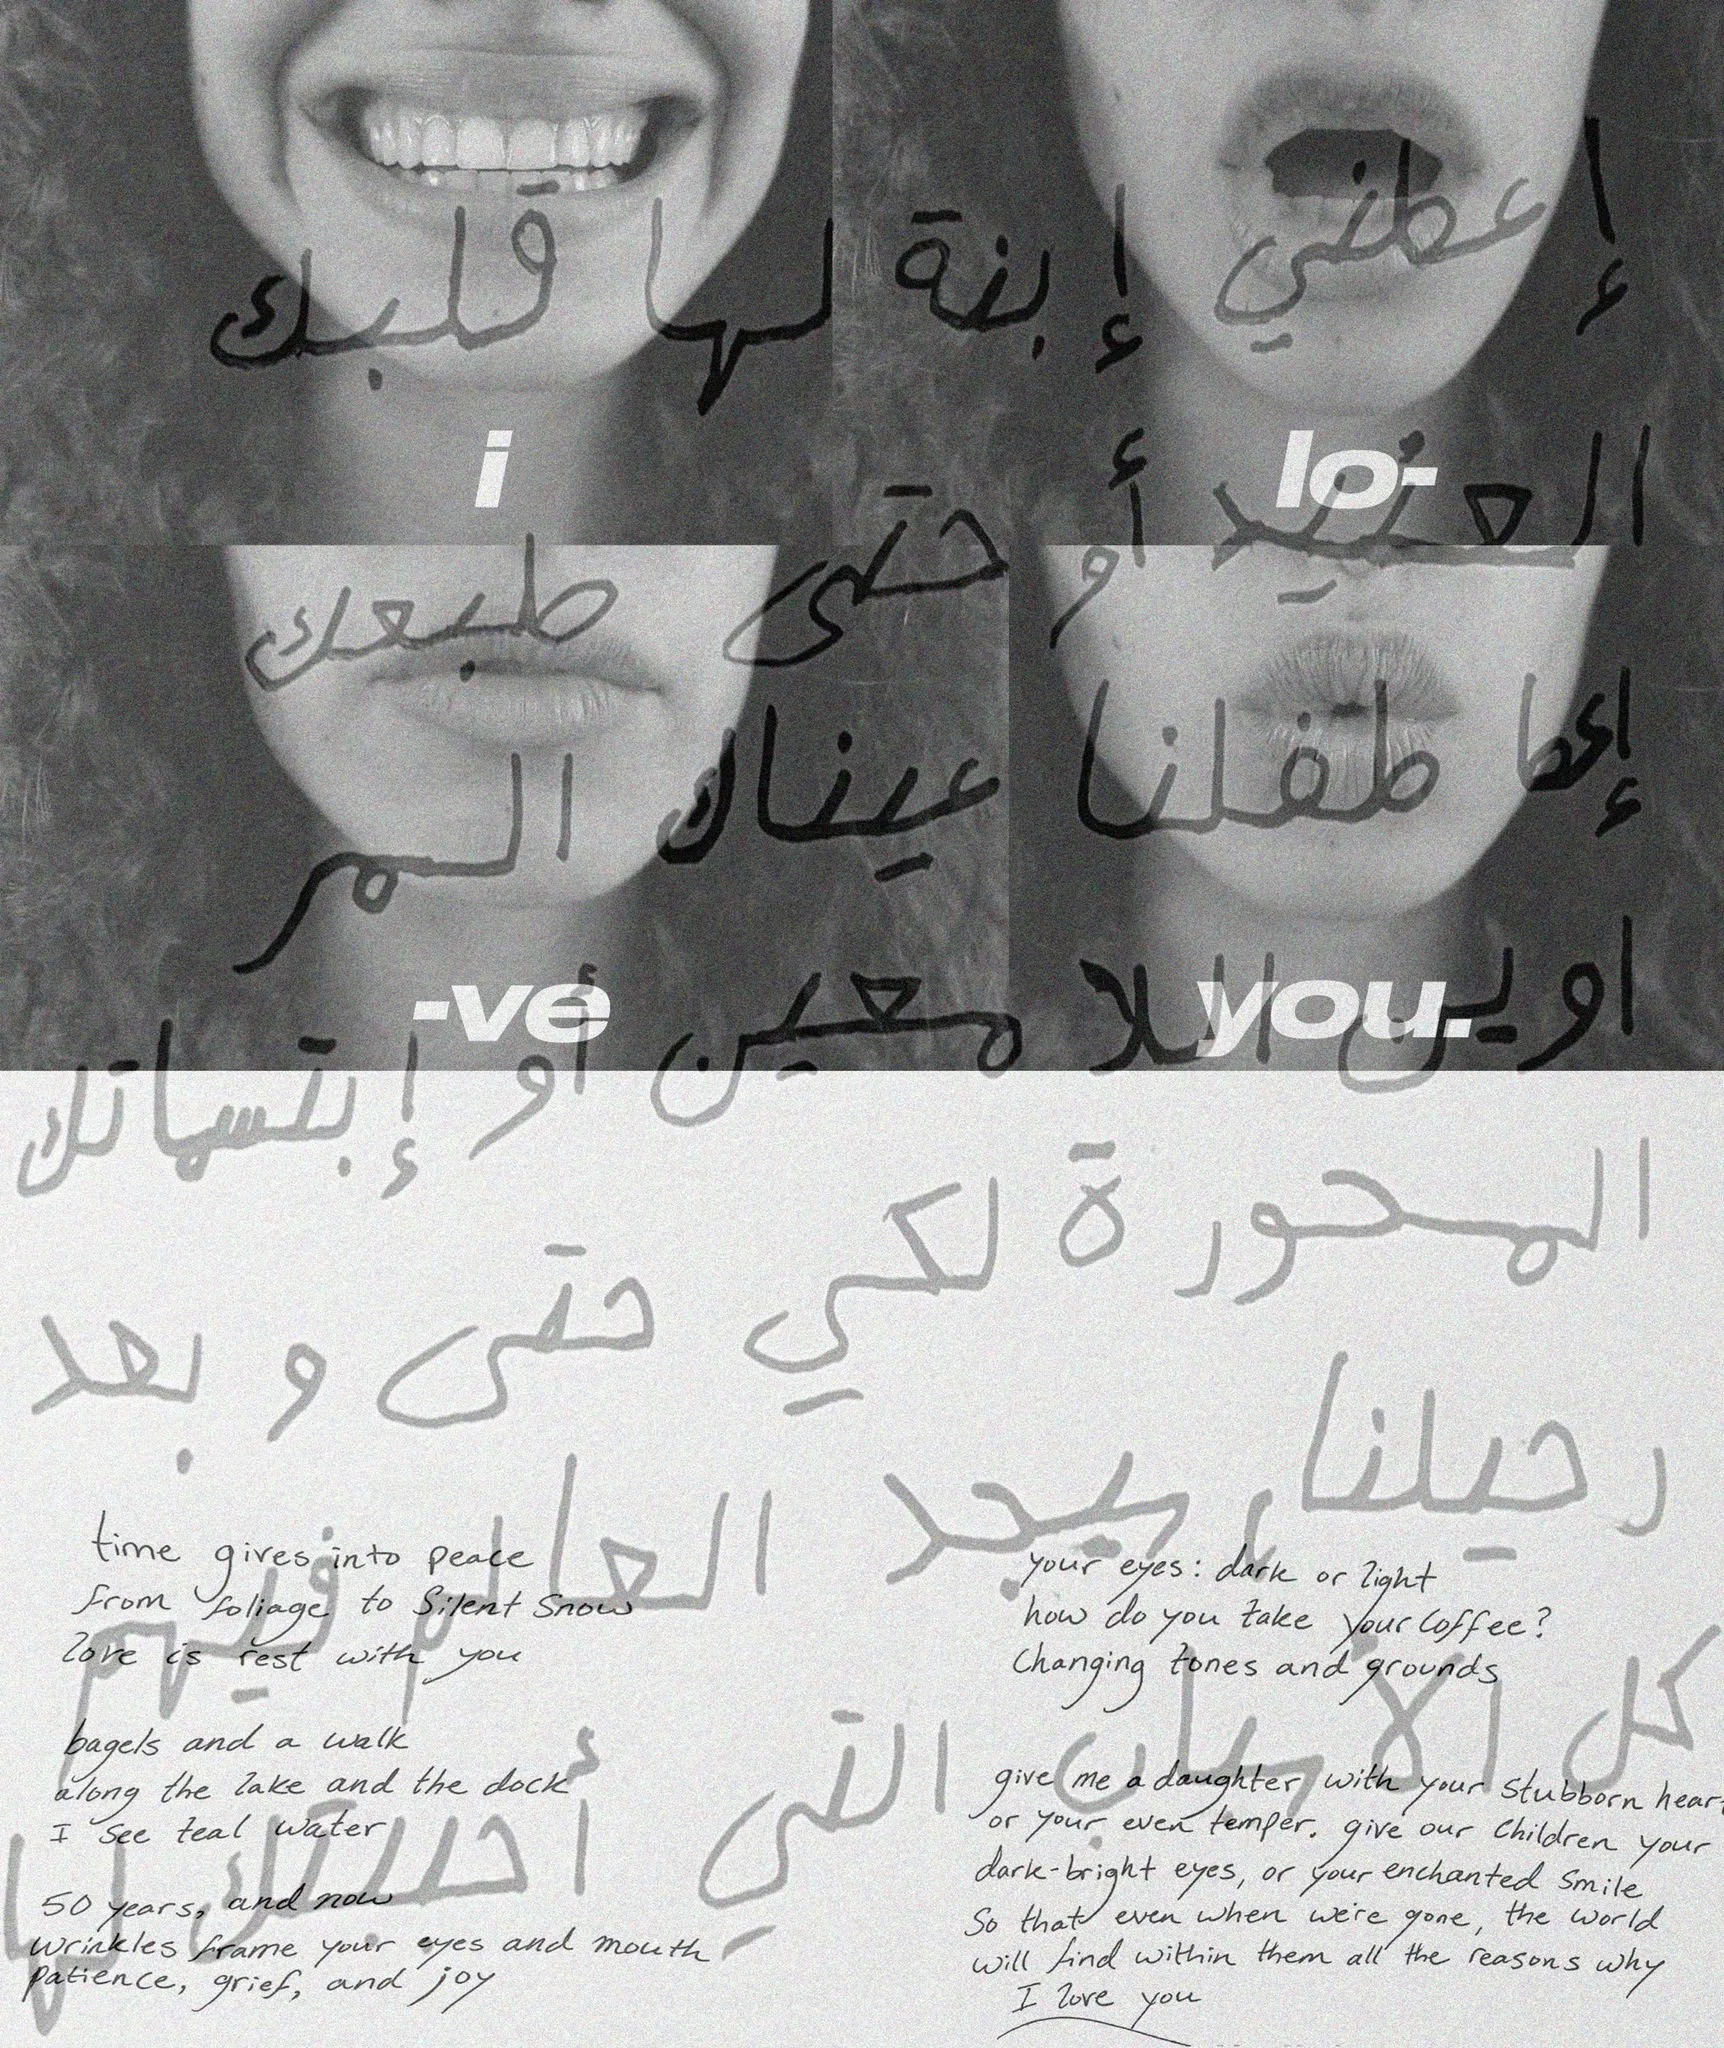 إعطني إبنة لها قلبك
العنيد أو حتى طبعك
إعط طفلنا عيناك المر
اوين اللا معين أو إبتسماتك
المحورة لكي حتى و بعد
رحيلنا، يجد العالم فيهم
كل التي أحببتك لها
i
lo-
-ve
you.
time gives into peace
from foliage to Silent Snow
love is rest with you
bagels and a walk
along the lake and the dock
I see teal water
50 years, and now
wrinkles frame your eyes and mouth
patience, grief, and joy
your eyes: dark or light
how do you take your coffee?
Changing tones and grounds
give me a daughter with your stubborn heart
or your even temper. give our children your
dark-bright eyes, or your enchanted smile
So that even when we're gone, the world
will find within them all the reasons why
I love you